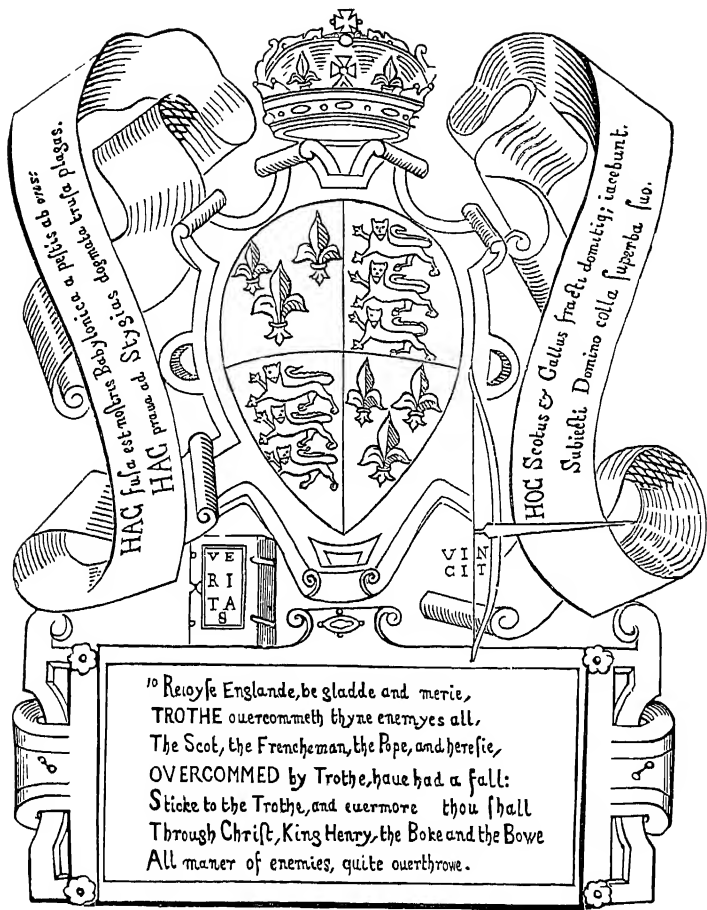 HAC fusa est nostris Babylonica a pestis ab oris:
HAC prava ad Stygias dogmata trusa plagas.
HOC Scotus & Gallus fracti domitiq; iacebunt.
Subiecti Domino colla superba suo.
VE
RI
TA
S
VIN
CIT
10 Reioyſe Englande, be gladde and merie,
TROTHE ouercommeth thyne enemyes all,
The Scot, the Frencheman, the Pope, and hereſie,
OVERCOMMED by Trothe, haue had a fall:
Sticke to the Trothe, and euermore thou ſhall
Through Chriſt, King Henry, the Boke and the Bowe
All maner of enemies, quite ouerthrowe.